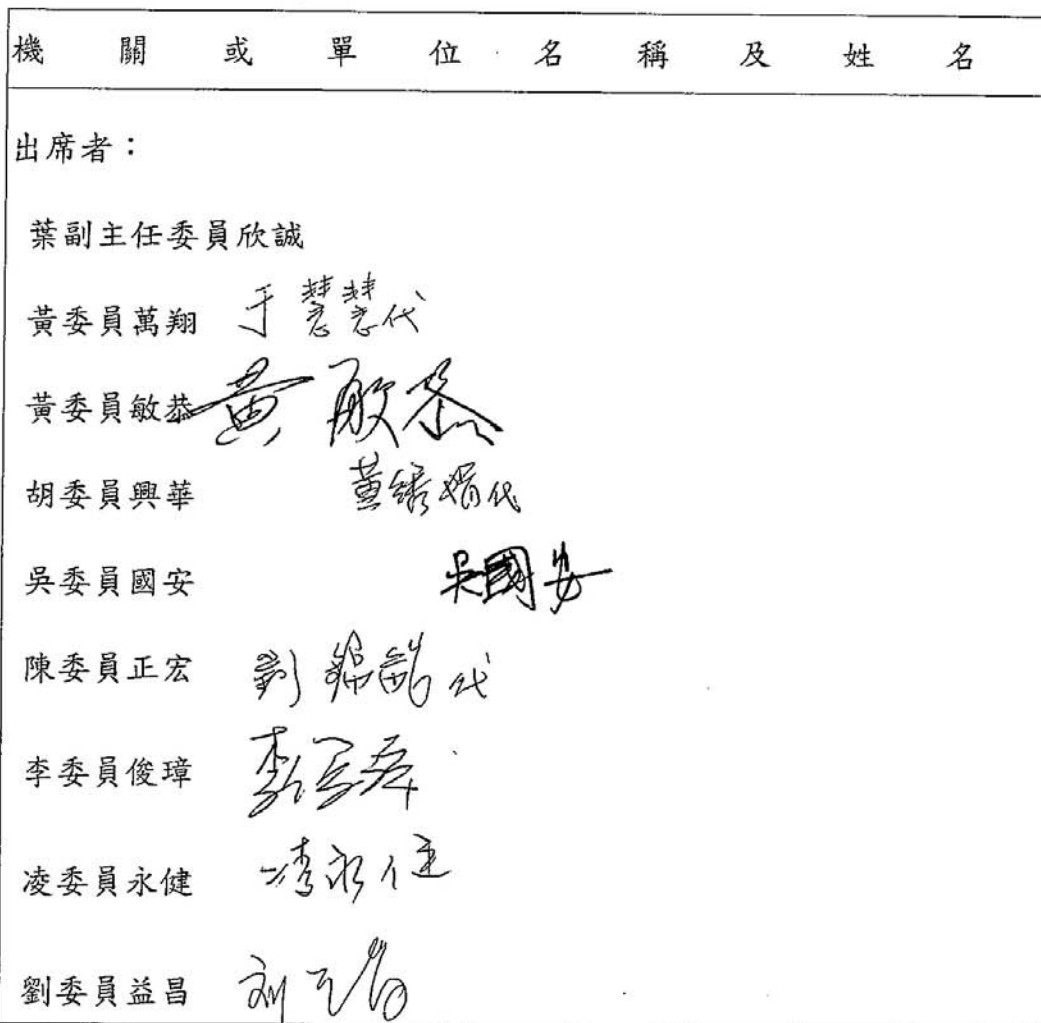 機關或單位名稱及姓名
出席者：
葉副主任委員欣誠
黃委員萬翔 于慧慧代
黃委員敏恭 黃敏恭
胡委員興華 黃綉娟代
吳委員國安 吳國安
陳委員正宏 劉 代
李委員俊璋 李俊璋
凌委員永健 凌永健
劉委員益昌 刘益昌